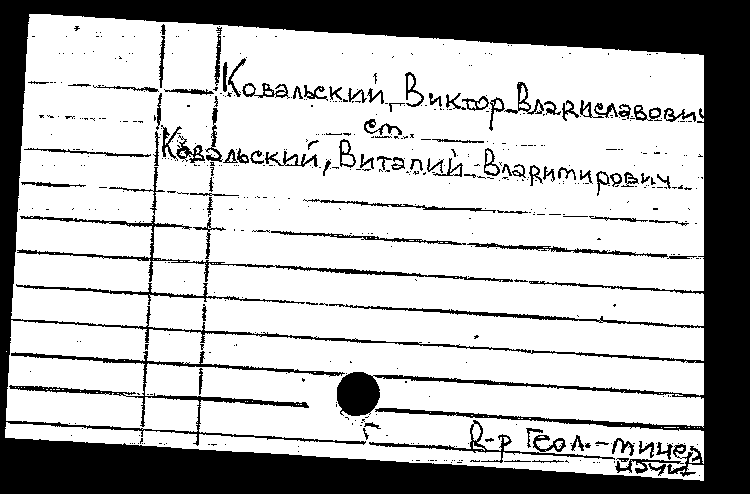 Ковальский, Виктор Владиславович
см.
Ковальский, Виталий Владимирович
Г
д-р Геол.-минер
наук